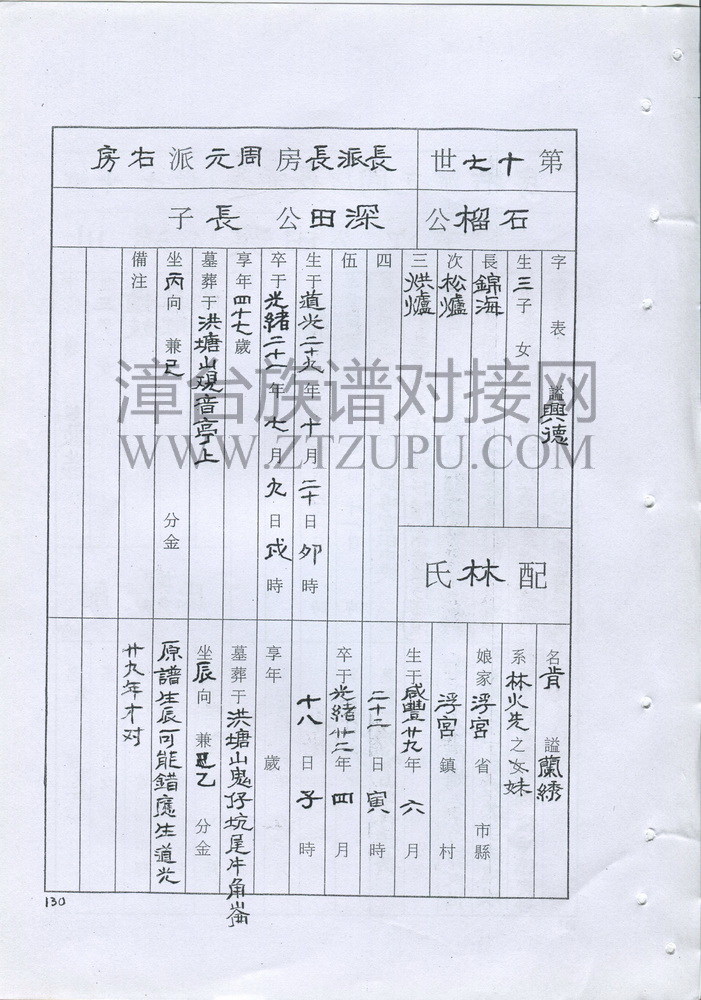 第十七世
長派長房周元派右房
石榴公
深田公長子
字 表 謚興德
生三子 女
長錦海
次松爐
三烘爐
四
伍
生于道光二十九年十月二十日卯時
卒于光緒二十一年七月九日戌時
享年四十七歲
墓葬于洪塘山观音亭上
坐丙向 兼己 分金
備注
配林氏
名肯 謚蘭綉
系林火先之女妹
娘家浮宮省 市縣
浮宮鎮 村
生于咸豐廿九年六月
二十二日寅時
卒于光緒廿二年四月
十八日子時
享年 歲
墓葬于洪塘山鬼仔坑尾牛角崙
坐辰向 兼乙 分金
原譜生辰可能錯應生道光
廿九年才对
130
漳台族谱对接网
WWW.ZTZUPU.COM